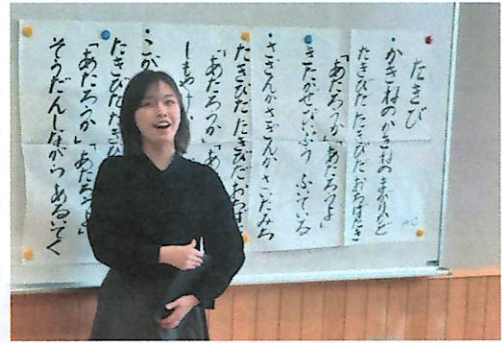 たきび
かきねのかきねの まがりかど
たきびだ たきびだ おちばたき
「あたろうか」「あたろうよ」
きたかぜぴいぷう ふいている
さざんかさざんか さいたみち
たきびだ たきびだ おちば
「あたろうか」「あ
しもや
こが
たきびだ たきび
「あたろうか」「あたろうよ」
そうだんしながら あるいてく